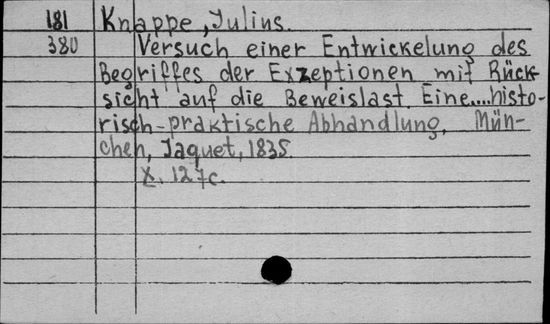 181 Knappe, Julius.
380 Versuch einer Entwickelung des
Begriffes der Exzeptionen mit Rück-
sicht auf die Beweislast. Eine....histo-
risch-praktische Abhandlung, Mün-
chen, Jaquet, 1835.
X. 127c.